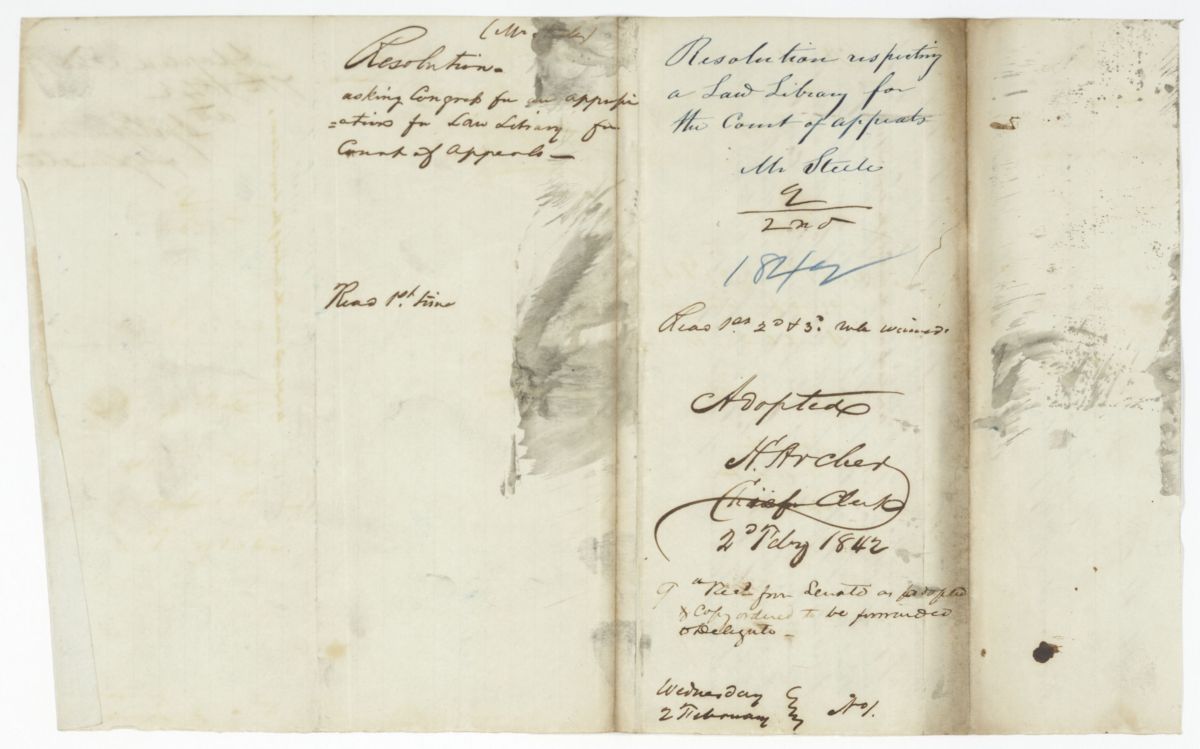 (Mr. Steele)
Resolution-
asking Congress for an appropri
=ation for Law Library for
Court of Appeals-
Read 1st. time
Resolution respecting
a Law Library for
the Court of appeals
Mr Steele
9
2nd
1842
Read 1st 2d & 3d. rule waived.
Adopted
H. Archer
Chief Clerk
2d Feby 1842
from Senate as adopted
& Copy ordered to be forwarded
Delegate-
Wednesday
2 February
No/.